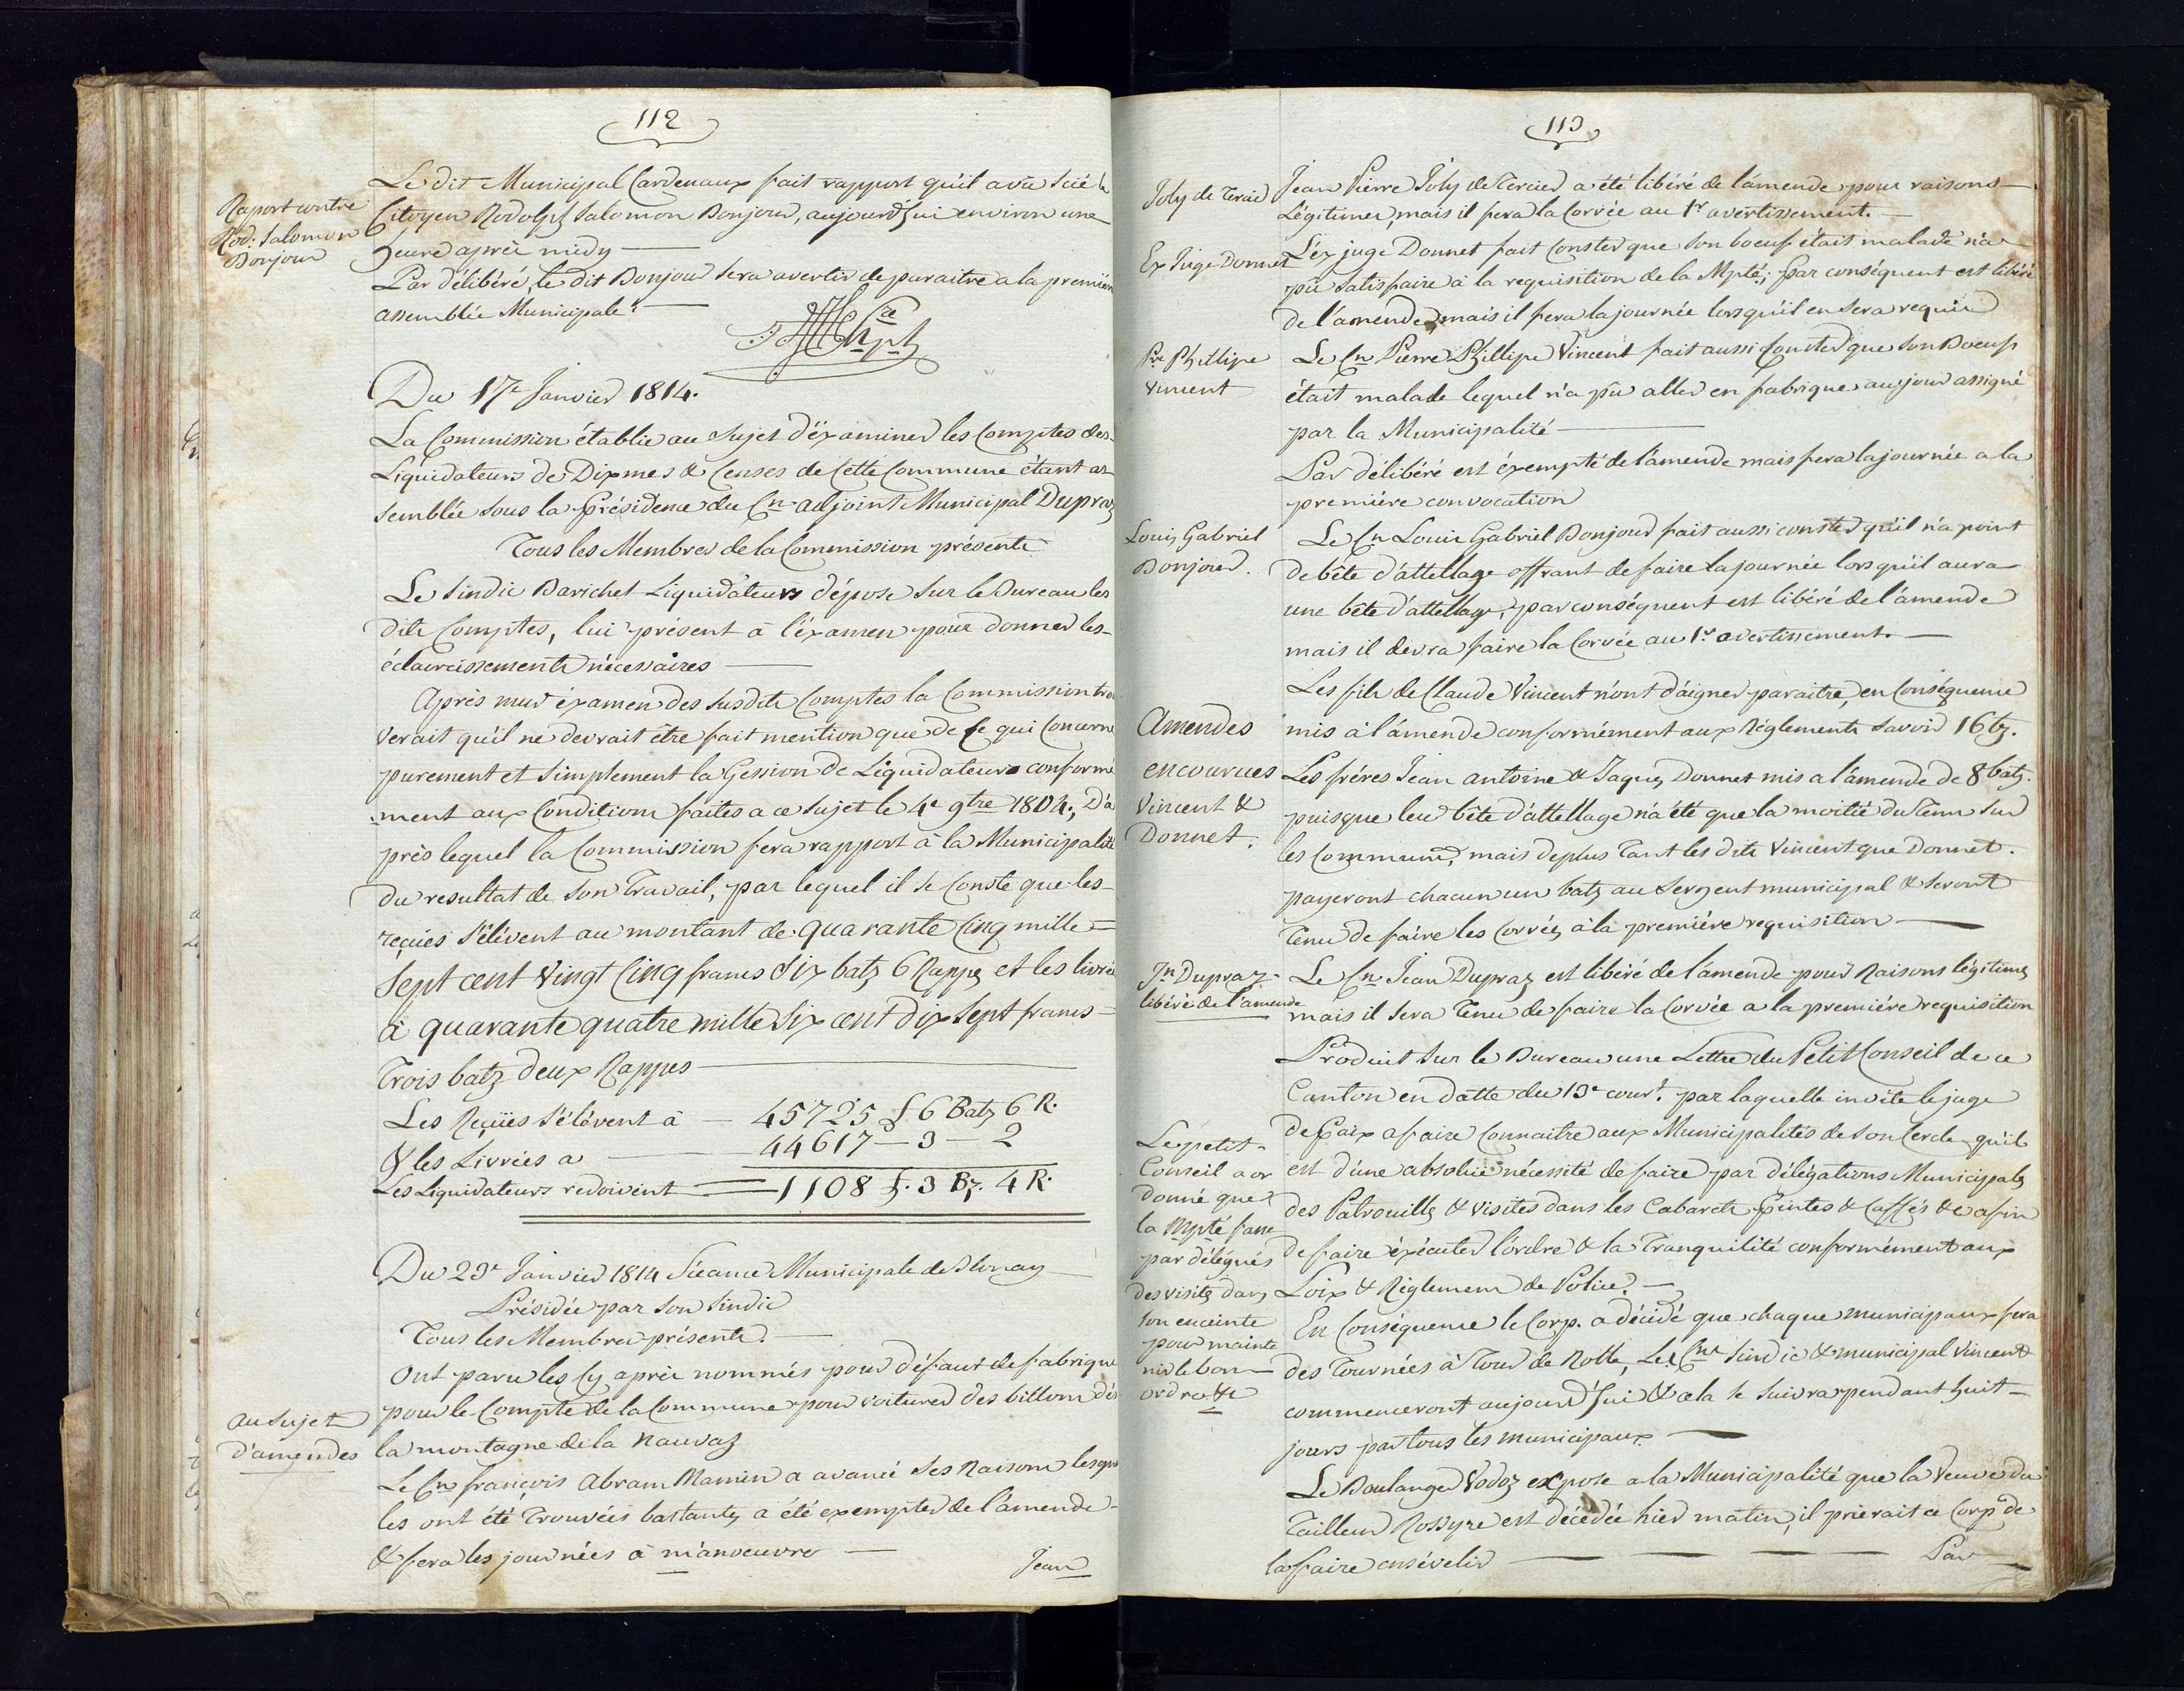 112
Raport contre
Rod: Salomon
Bonjour
Le dit Municipal Cardenaux fait rapport qu'il a vû scié le
Citoyen Rodolph Salomon Bonjour, aujourd'hui environ une
heure après midy
Par délibéré, le dit Bonjour sera avertir de paraitre a la premiére
assemblée Municipale.
Du 17e Janvier 1814.
La Commission établie au Sujet d'éxaminer les Comptes des
Liquidateurs de Dixmes & Censes de Cette Commune étant as
semblée sous la Présidence du Cn. adjoint Municipal Dupraz
Tous les Membres de la Commission présents
Le Sindic Barichet Liquidateurs dépose sur le Bureau les
dits Comptes, lui présent à l'éxamen pour donner les
éclaircissements nécessaires
Après mur éxamen des susdits Comptes la Commission trou
verait qu'il ne devrait être fait mention que de Ce qui Concerne
purement et simplement la Gession de Liquidateurs conformé
ment aux Conditions faites a ce sujet le 4e 9bre 1804; D'a
près lequel la Commission fera rapport à la Municipalité
du resultat de son Travail, par lequel il se Conste que les
reçües s'élévent au montant de quarante Cinq mille =
Sept cent Vingt Cinq francs Six batz 6 Rappes et les livrées
à quarante quatre mille Six cent dix Sept francs =
Trois batz deux Rappes
Les Reçües s'élévent à — 45725 f 6 Batz 6 R.
& les Livrées a — 44617 — 3 — 2
Les Liquidateurs redoivent = 1108 f. 3 Bz. 4 R.
Du 23e Janvier 1814 Séance Municipale de Blonay
Présidée par son Sindic
Tous les Membres présents.
au Sujet
d'amendes
Ont paru les Cy après nommés pour défaut de fabrique
pour le Compte de la Commune pour voiturer des billons dès
la montagne de la Nauvaz
Le Cn françois Abram Mamin a avancé ses Raisons lesquel
les ont été Trouvées bastantes, a été exempter de l'amende
& fera les journées à manoeuvre
Jean
113
Joly de Tercier
Jean Pierre Joly de Tercier a été libéré de l'amende pour raisons
Légitimes, mais il fera la Corvée au 1r avertissement.
Ex Juge Donnet
L'éx juge Donnet fait Conster que son boeuf était malade n'a
pû satisfaire à la requisition de la Mpté; par conséquent est libéré
de l'amende, mais il fera la journée lorsqu'il en sera requis
Pre Phillipe
Vincent
Le Cn Pierre Phillipe Vincent fait aussi Conster que son Boeuf
était malade lequel n'a pû aller en fabrique au jour assigné
par la Municipalité
Par délibéré est éxempté de l'amende mais fera la journée a la
premiére convocation
Louis Gabriel
Bonjour.
Le Cn Louis Gabriel Bonjour fait aussi conster qu'il n'a point
de bête d'attellage offrant de faire la journée lorsqu'il aura
une bête d'attellage, par conséquent est libéré de l'amende
mais il devra faire la Corvée au 1r avertissement.
Amendes
encourues
Vincent &
Donnet.
Les fils de Claude Vincent n'ont d'aigner paraitre, en Conséquence
mis à l'amende conformément aux Réglements savoir 16 bz.
Les fréres Jean antoine & Jaques Donnet mis a l'amende de 8 batz.
puisque leur bête d'attellage n'a été que la moitié du Tems sur
les Communs, mais deplus Tant les dits Vincent que Donnet.
payeront chacun un batz au Sergent municipal & seront
Tenu de faire les Corvées à la premiére requisition
Jn Dupraz
libéré de l'amende
Le Cn Jean Dupraz est libéré de l'amende pour Raisons légitimes
mais il sera Tenu de faire la Corvée a la premiére requisition
Le petit
Conseil a or
donné que
la Mpté fasse
par délégués
des visites dans
son enceinte
pour mainte
nir le bon
ordre &c
Produit sur le Bureau une Lettre du Petit Conseil de ce
Canton en datte du 13e court. par laquelle invite le juge
de Paix a faire Connaitre aux Municipalités de son Cercle qu'il
est d'une absolue nécessité de faire par délégations Municipales
des Patrouilles & visites dans les Cabarets Pintes & Caffés &c afin
de faire éxécuter l'ordre & la Tranquilité conformément aux
Loix & Réglemens de Police.
En Conséquence le Corp. a décidé que chaque municipaux fera
des Tournées à Tour de Rolle, Les Cns Sindic & municipal Vincent
commenceront aujourd'hui & cela se suivra pendant huit
jours par tous les municipaux
Le Boulanger Vodoz expose a la Municipalité que la Veuve du
Tailleur Rossyre est décédée hier matin, il prierait ce Corps de
la faire ensévelir
Par